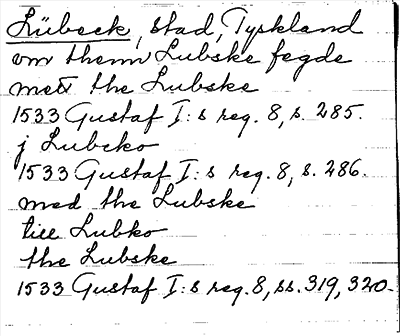 Lübeck, stad, Tyskland
om themn Lubske fegde
mett the Lubske
1533 Gustaf I:s reg. 8, s. 285.
j Lubcko
1533 Gustaf I:s reg. 8, s. 286.
med the Lubske
till Lubko
the Lubske
1533 Gustaf I:s reg. 8, ss. 319, 320.